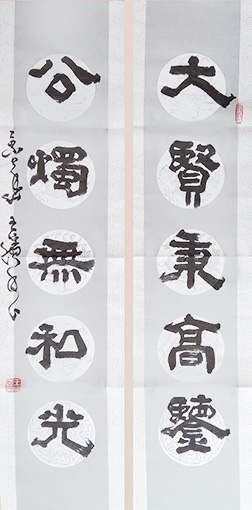 大賢秉高鑒
公燭無和光